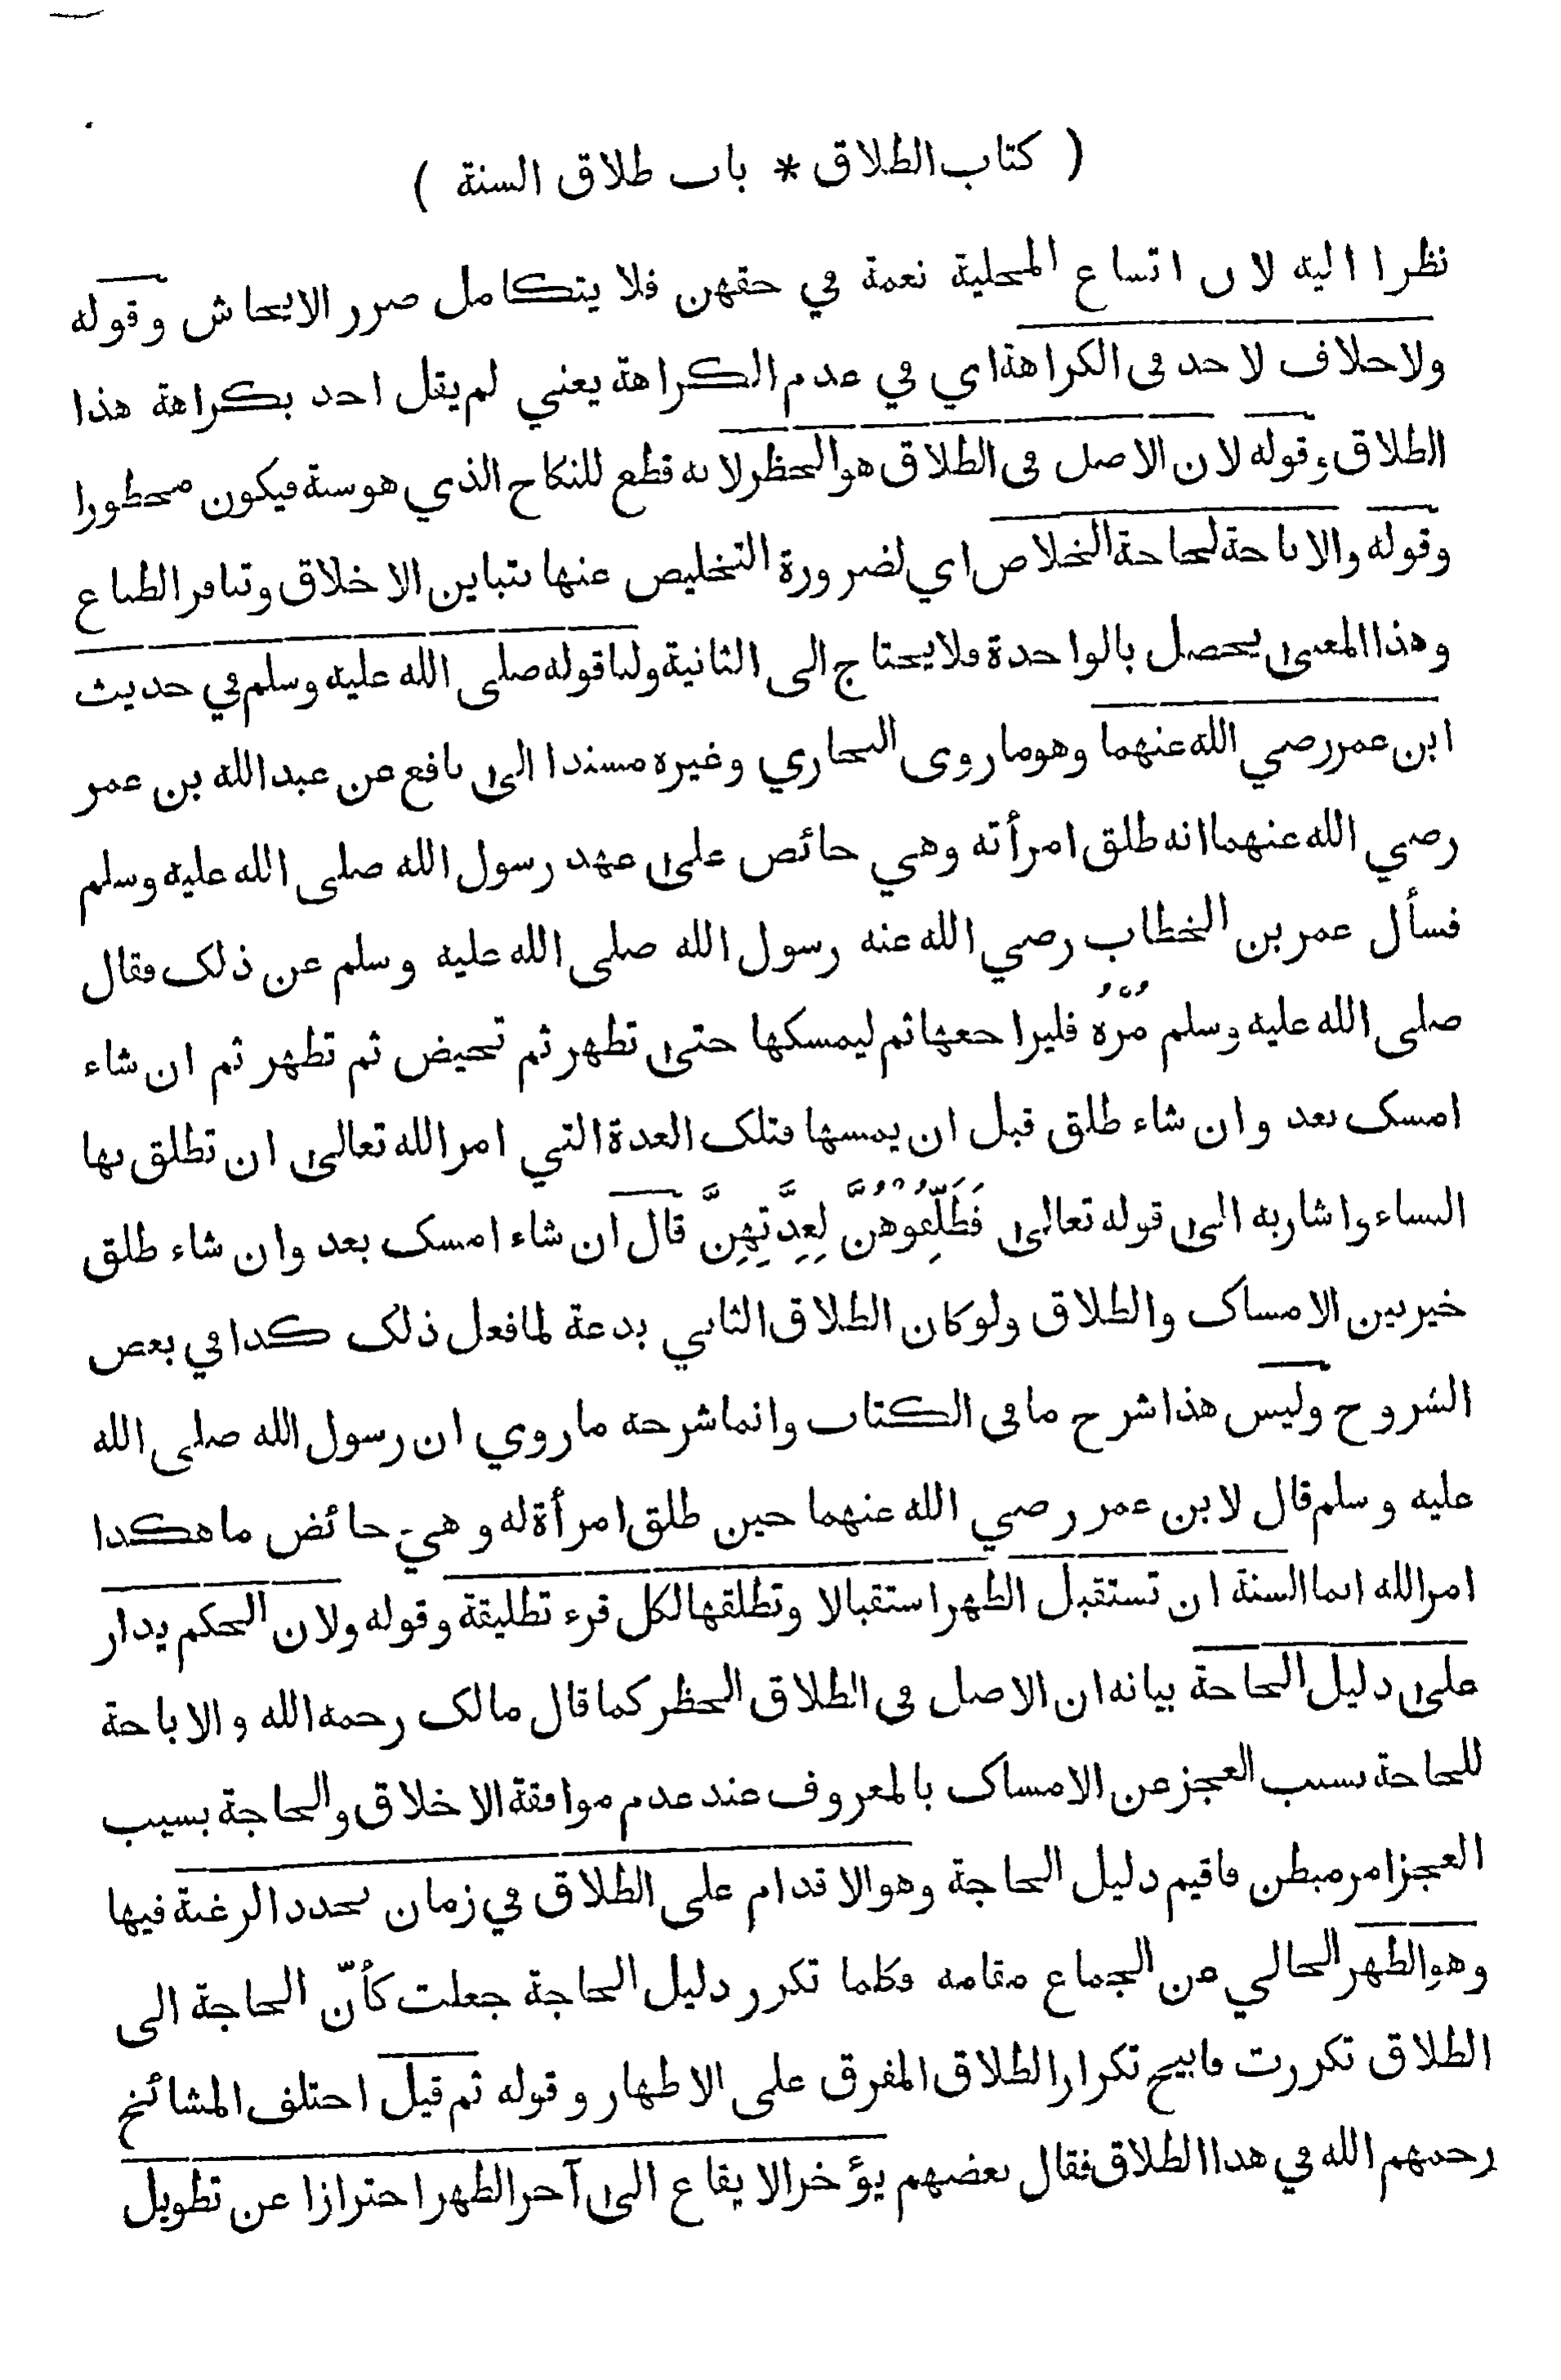 ( كتاب الطلاق * باب طلاق السنة )
نظرا اليه لان اتساع المحلية نعمة في حقهن فلا يتكامل ضرر الايحاش وقوله
ولاخلاف لاحد في الكراهة اي في عدم الكراهة يعني لم يقل احد بكراهة هذا
الطلاق وقوله لان الاصل في الطلاق هو الحظر لانه قطع للنكاح الذي هو سنة فيكون محظورا
وقوله والاباحة لحاجة الخلاص اي لضرورة التخليص عنها بتباين الاخلاق وتنافر الطباع
وهذا المعنى يحصل بالواحدة فلا يحتاج الى الثانية ولنا قوله صلى الله عليه وسلم في حديث
ابن عمر رضي الله عنهما وهو ما روى البخاري وغيره مسندا الى نافع عن عبد الله بن عمر
رضي الله عنهما انه طلق امرأته وهي حائض على عهد رسول الله صلى الله عليه وسلم
فسأل عمر بن الخطاب رضي الله عنه رسول الله صلى الله عليه وسلم عن ذلك فقال
صلى الله عليه وسلم مُرْهُ فليراجعها ثم ليمسكها حتى تطهر ثم تحيض ثم تطهر ثم ان شاء
امسك بعد وان شاء طلق قبل ان يمسها فتلك العدة التي امر الله تعالى ان تطلق بها
النساء واشار به الى قوله تعالى فَطَلِّقُوهُنَّ لِعِدَّتِهِنَّ قال ان شاء امسك بعد وان شاء طلق
خير بين الامساك والطلاق ولو كان الطلاق الثاني بدعة لما فعل ذلك كذا في بعض
الشروح وليس هذا شرح ما في الكتاب وانما شرحه ما روي ان رسول الله صلى الله
عليه وسلم قال لابن عمر رضي الله عنهما حين طلق امرأة له وهي حائض ما هكذا
امر الله انما السنة ان تستقبل الطهر استقبالا وتطلقها لكل قرء تطليقة وقوله ولان الحكم يدار
على دليل الحاجة بيانه ان الاصل في الطلاق الحظر كما قال مالك رحمه الله والاباحة
للحاجة بسبب العجز عن الامساك بالمعروف عند عدم موافقة الاخلاق والحاجة بسبب
العجز امر مبطن فاقيم دليل الحاجة وهو الاقدام على الطلاق في زمان تجدد الرغبة فيها
وهو الطهر الخالي عن الجماع مقامه فكلما تكرر دليل الحاجة جعلت كأنّ الحاجة الى
الطلاق تكررت فابيح تكرار الطلاق المفرق على الاطهار وقوله ثم قيل اختلف المشائخ
رحمهم الله في هذا الطلاق فقال بعضهم يؤخر الايقاع الى آخر الطهر احترازا عن تطويل